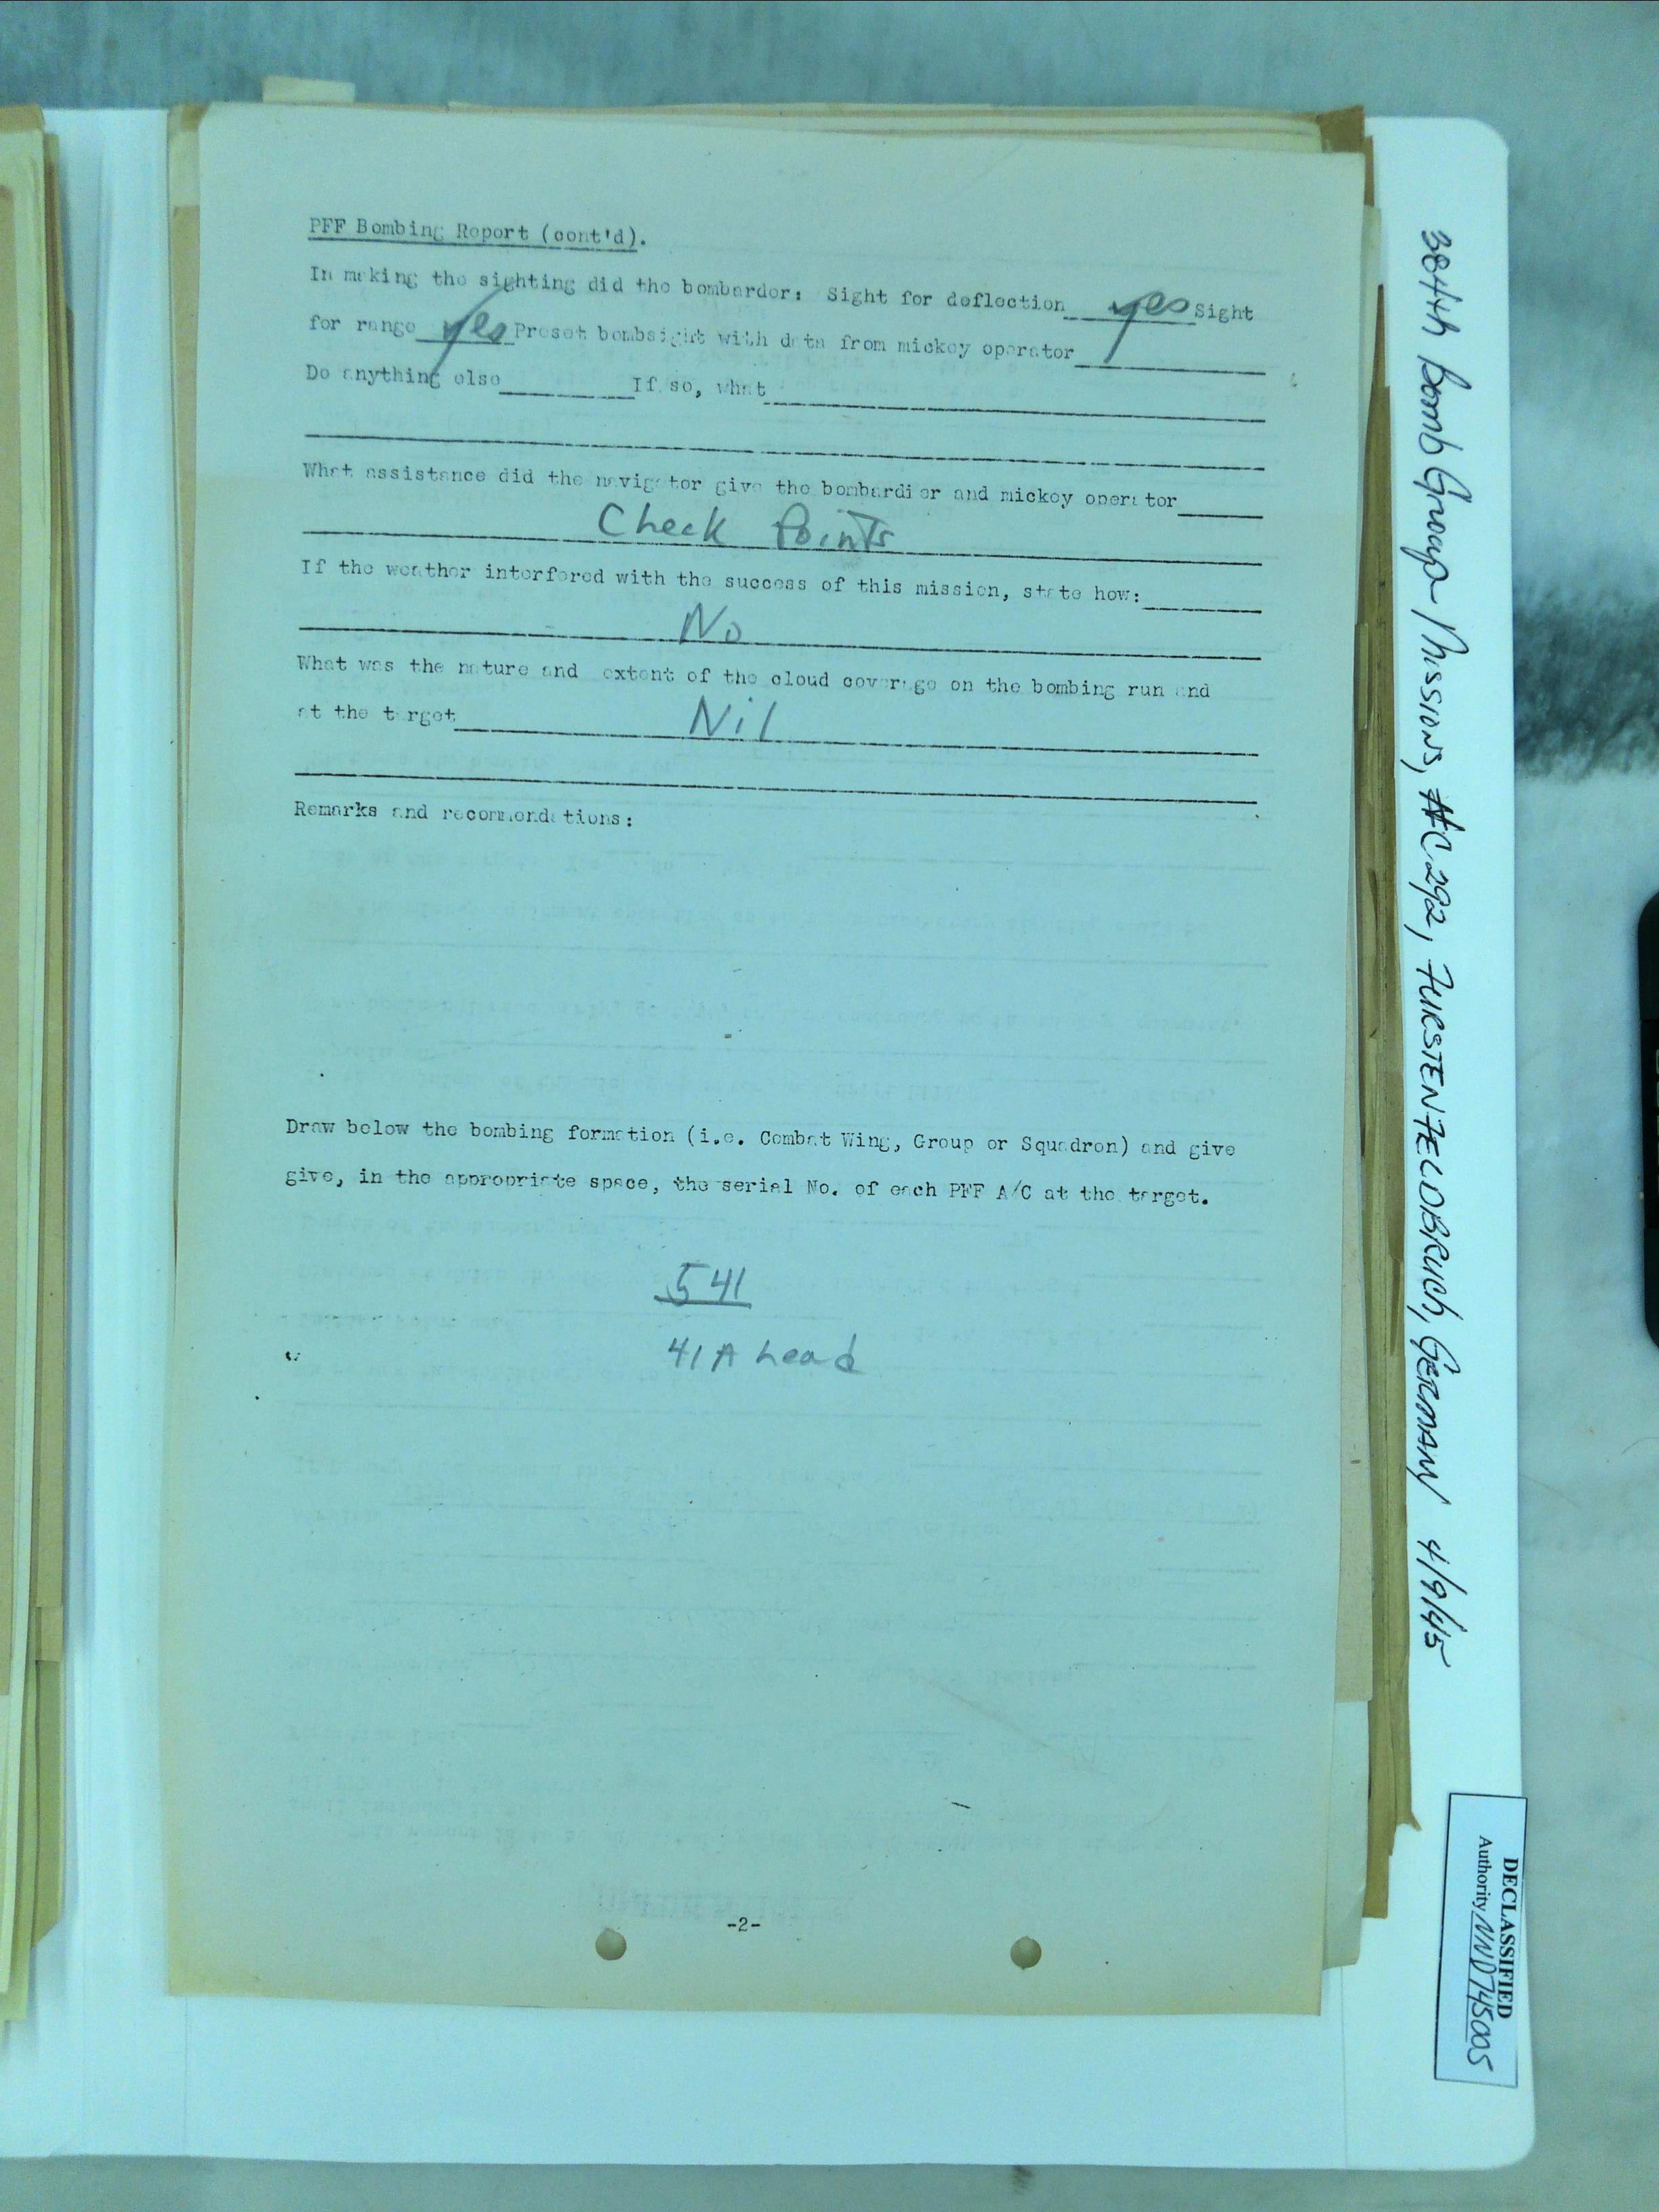 PFF Bombing Report (cont'd).
In making the sighting did the bombarder: Sight for deflection yes Sight
for range yes Preset bombsight with data from mickey operator
Do anything else If so, what
What assistance did the navigator give the bombardier and mickey operator
Check Points
If the weather interfered with the success of this mission, state how:
No
What was the nature and extent of the cloud coverage on the bombing run and
at the target Nil
Remarks and recommendations:
Draw below the bombing formation (i.e. Combat Wing, Group or Squadron) and give
give, in the appropriate space, the serial No. of each PFF A/C at the target.
541
41 A Lead
-2-
384th Bomb Group Missions, #C292, FURSTENFELDBRUCH, GERMANY 4/9/45
DECLASSIFIED
Authority NND745005